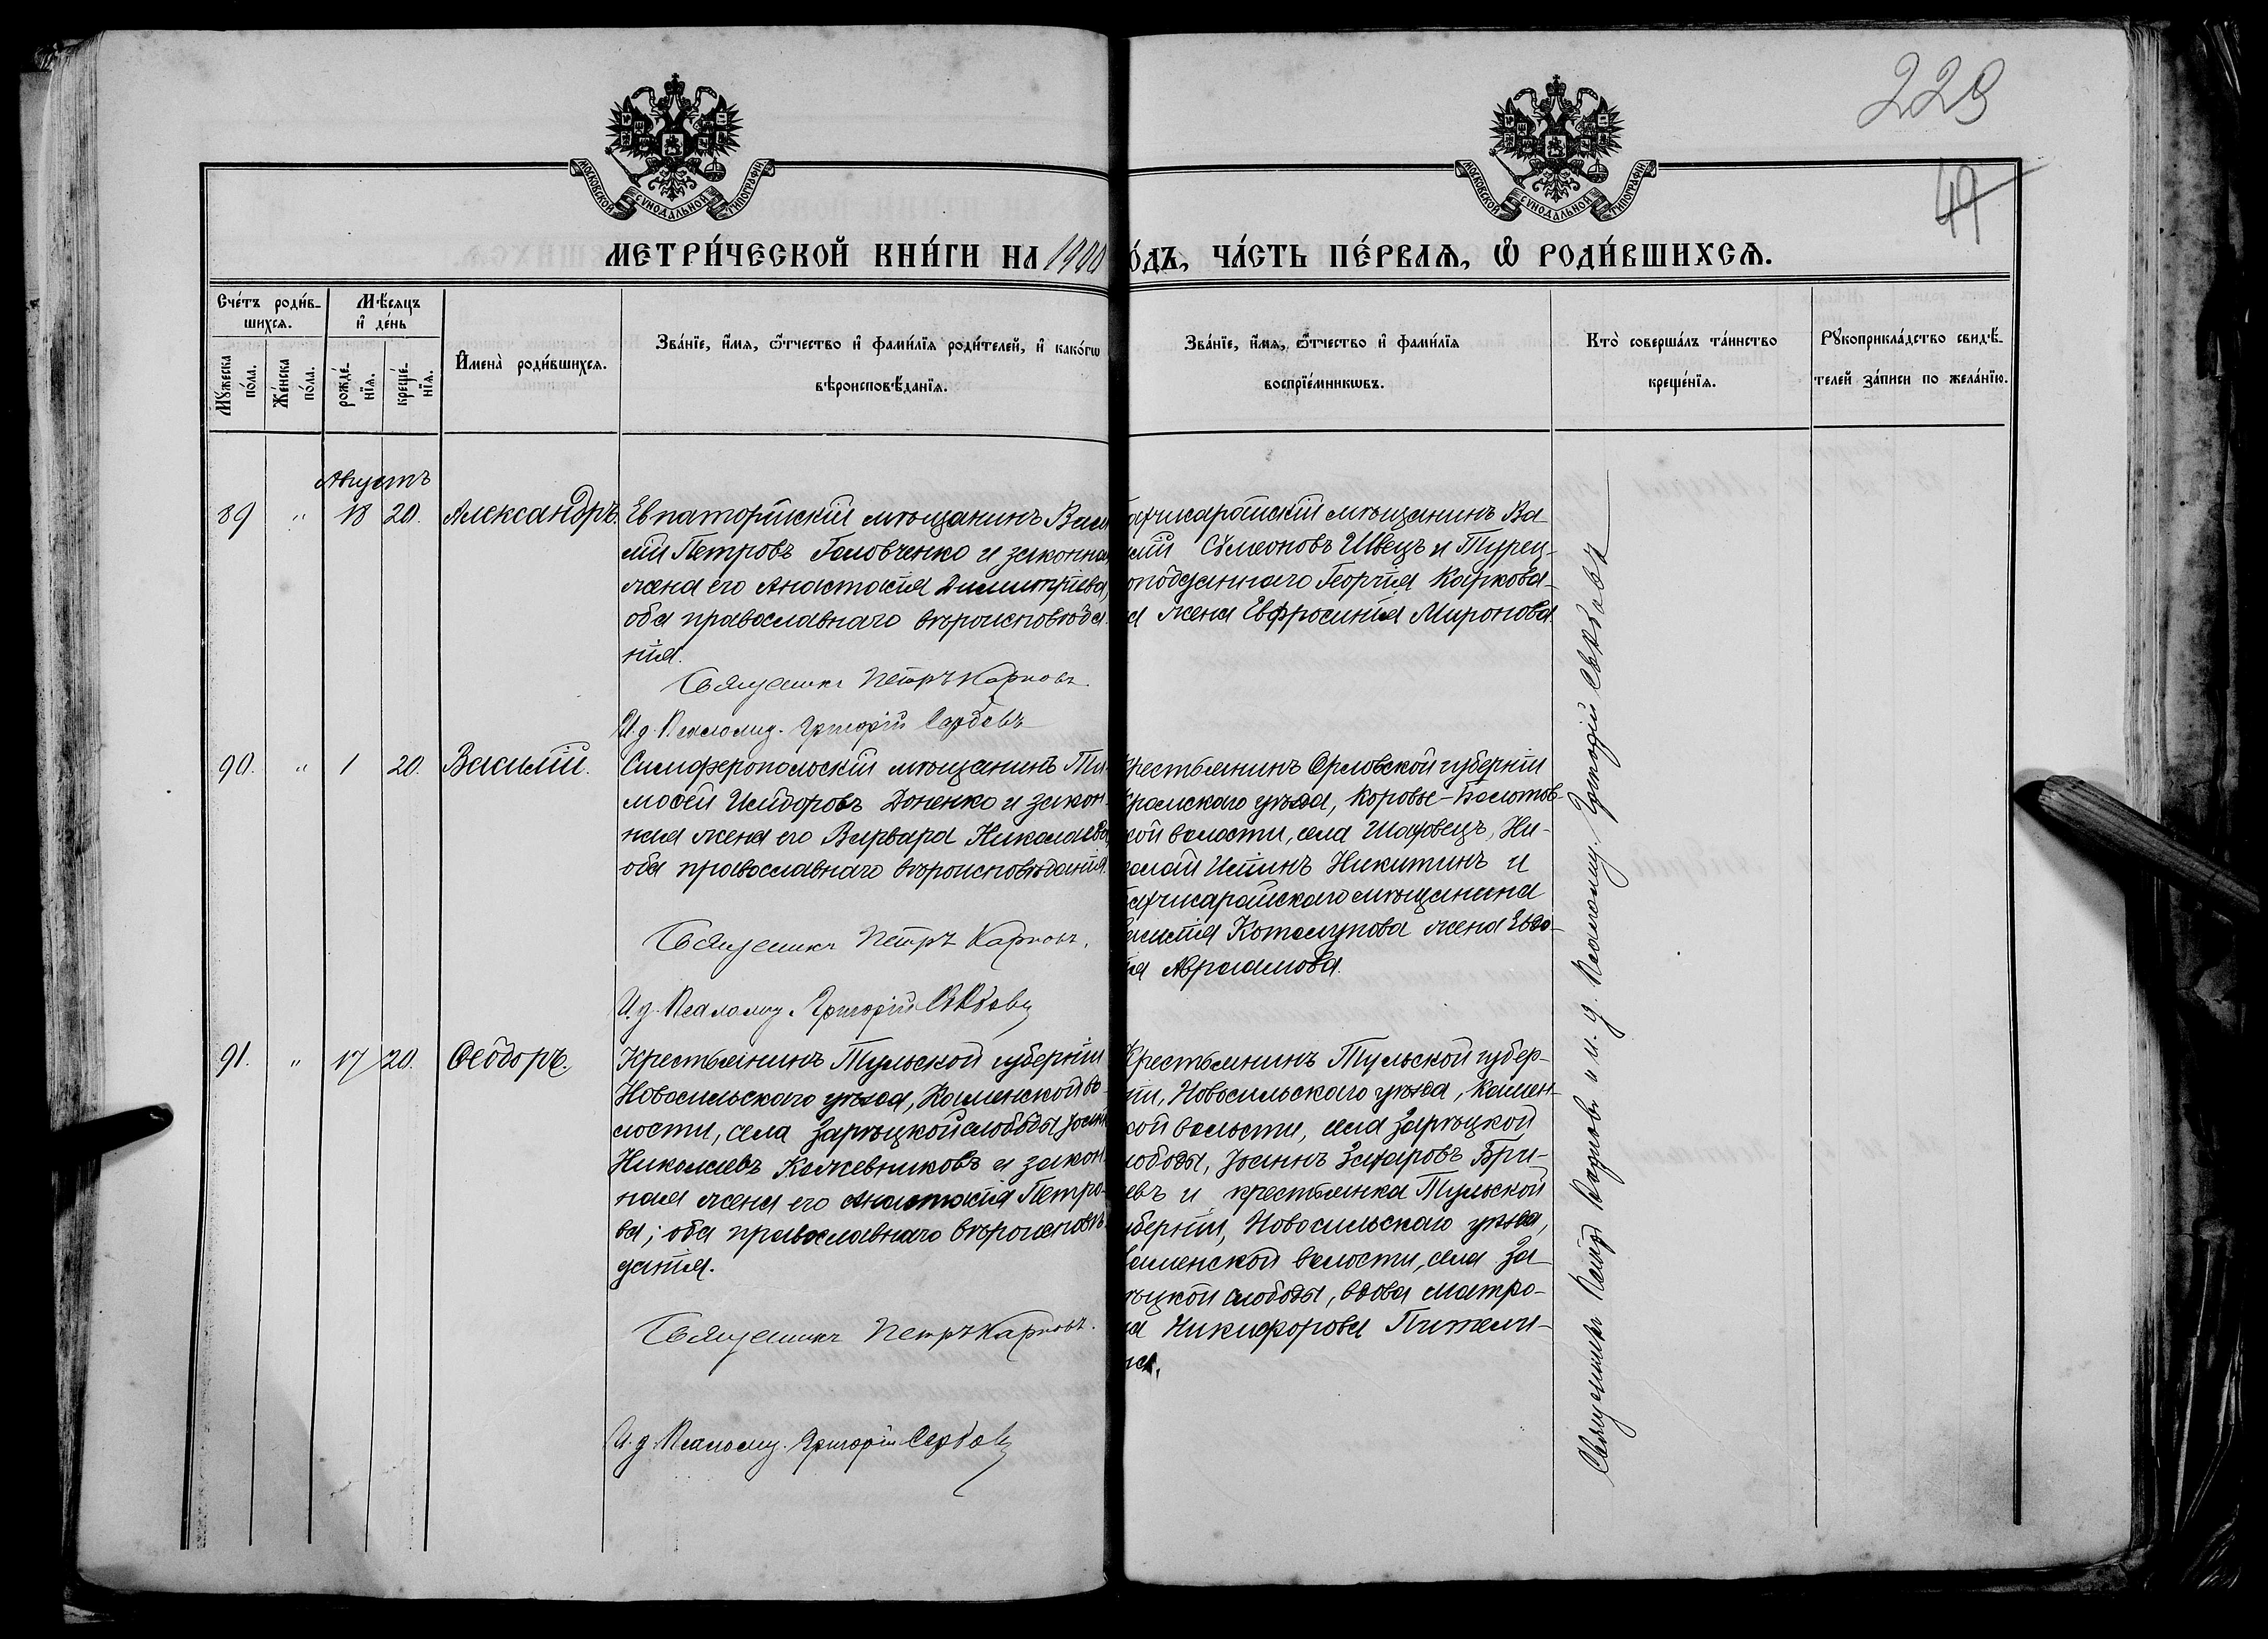 229
49
МОСКОВСКОЙ СѴНОДАЛЬНОЙ ТИПОГРАФІИ
МОСКОВСКОЙ СѴНОДАЛЬНОЙ ТИПОГРАФІИ
МЕТРИ́ЧЕСКОЙ КНИ́ГИ НА 1900
О́ДЪ, ЧА́СТЬ ПЕ́РВАѦ, Ѽ РОДИ́ВШИХСѦ.
Сче́тъ роди́в-
шихсѧ.
Мѣ́сѧцъ
и҆ де́нь
Мꙋ́жеска
по́ла.
Же́нска
по́ла.
рожде́-
нїѧ.
креще́-
нїѧ.
И҆мена̀ роди́вшихсѧ.
Зва́нїе, и҆́мѧ, ѻ҆́тчество и҆ фами́лїѧ роди́телей, и҆ како́гѡ
вѣроисповѣ́данїѧ.
Зва́нїе, и҆́мѧ, ѻ҆́тчество и҆ фами́лїѧ
воспрїе́мникѡвъ.
Кто̀ соверша́лъ та́инство
креще́нїѧ.
Рꙋкоприкла́дство свидѣ́-
телей за́писи по жела́нїю.
Августъ
89 " 18 20. Александръ. Евпаторійскій мѣщанинъ Васи
лій Петровъ Головченко и законная
жена его Анастасія Димитріева,
оба православнаго вѣроисповѣда
нія.
Священникъ Петръ Карповъ.
И. д. Псаломщ. Григорій Сербовъ
ахчисарайскій мѣщанинъ Ва-
илій Сѵмеоновъ Швецъ и Турец-
оподданнаго Георгія Каркова-
а жена Евфросинія Миронова
90. " 1 20. Василій. Симферопольскій мѣщанинъ Ти-
моѳей Исидоровъ Доненко и закон-
ная жена его Варвара Николаева,
оба православнаго вѣроисповѣданія.
Священникъ Петръ Карповъ.
И. д. Псаломщ. Григорій Сербовъ
Крестьянинъ Орловской губерніи
Кромскаго уѣзда, Коровье-Болотов-
кой волости, села Шаховецъ, Ни-
олай Никитинъ и
ахчисарайскаго мѣщанина
асилія жена Евдо-
ія Авраамова.
91. " 17 20. Ѳеодоръ. Крестьянинъ Тульской губерніи
Новосильскаго уѣзда, Каменской во-
лости, села Зарѣцкой слободы Іоаннъ
Николаевъ Кожевниковъ и закон
ная жена его Анастасія Петро-
ва; оба православнаго вѣроисповѣ-
данія.
Священникъ Петръ Карповъ.
И. д. Псаломщ. Григорій Сербовъ
Крестьянинъ Тульской губер-
ніи, Новосильскаго уѣзда, Камен-
кой волости, села Зарѣцкой
лободы, Іоаннъ Захаровъ Бри-
евъ и крестьянка Тульской
уберніи, Новосильскаго уѣзда,
Каменской волости, села За-
рѣцкой слободы, вдова Матро-
на Никифорова Пители-
на.
Священникъ Петръ Карповъ и и. д. Псаломщ. Григорій Сербовъ